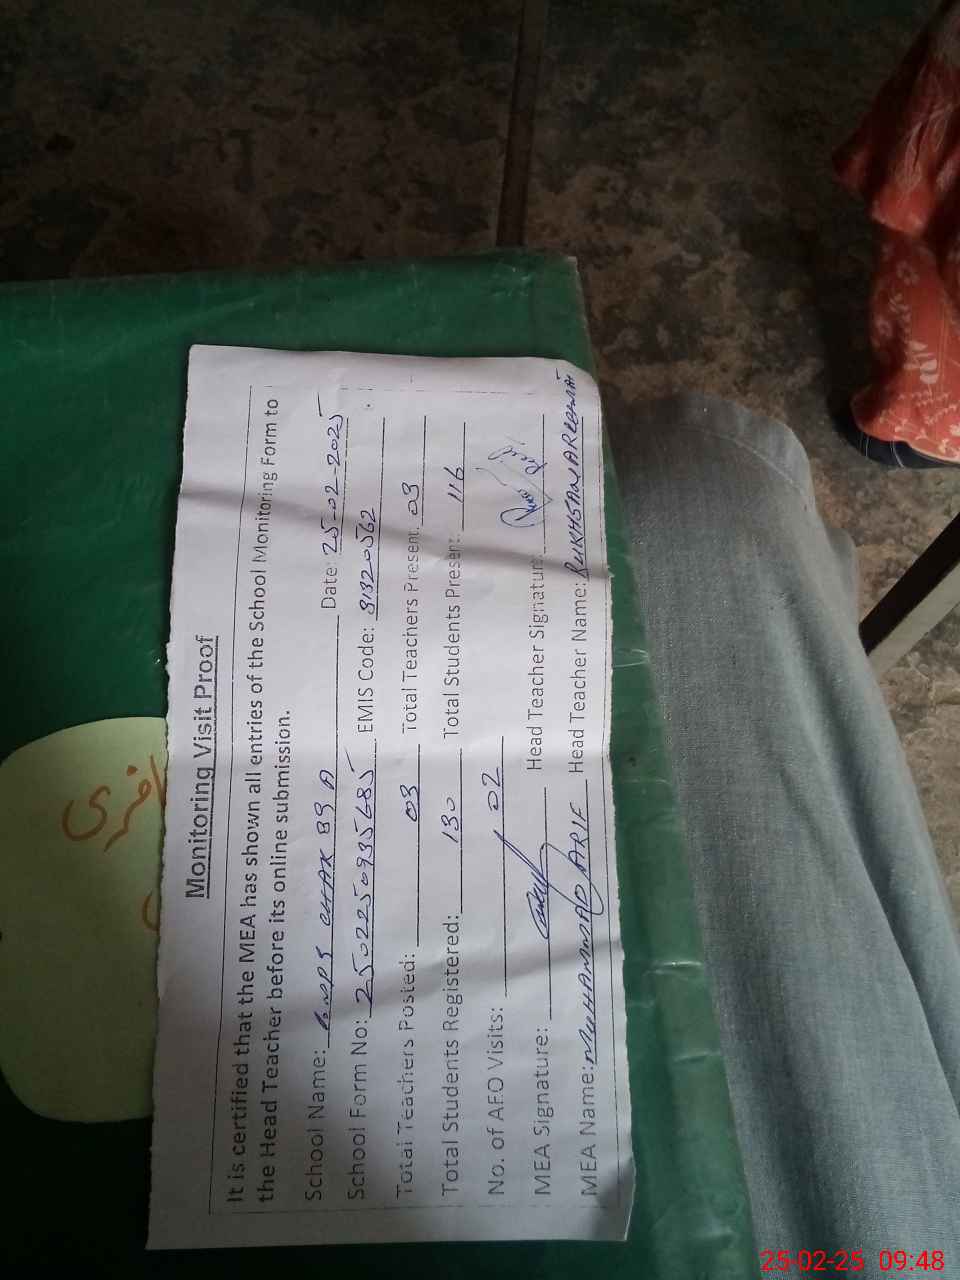 Monitoring Visit Proof
It is certified that the MEA has shown all entries of the School Monitoring Form to
the Head Teacher before its online submission.
School Name: GMPS CHAK 89 A Date: 25-02-2025
School Form No: 2502250935685 EMIS Code: 31320562
Total Teachers Posted: 03 Total Teachers Present: 03
Total Students Registered: 130 Total Students Present: 116
No. of AEO Visits: 02
MEA Signature: Head Teacher Signature:
MEA Name: MUHAMMAD ARIF Head Teacher Name:
25-02-25 09:48